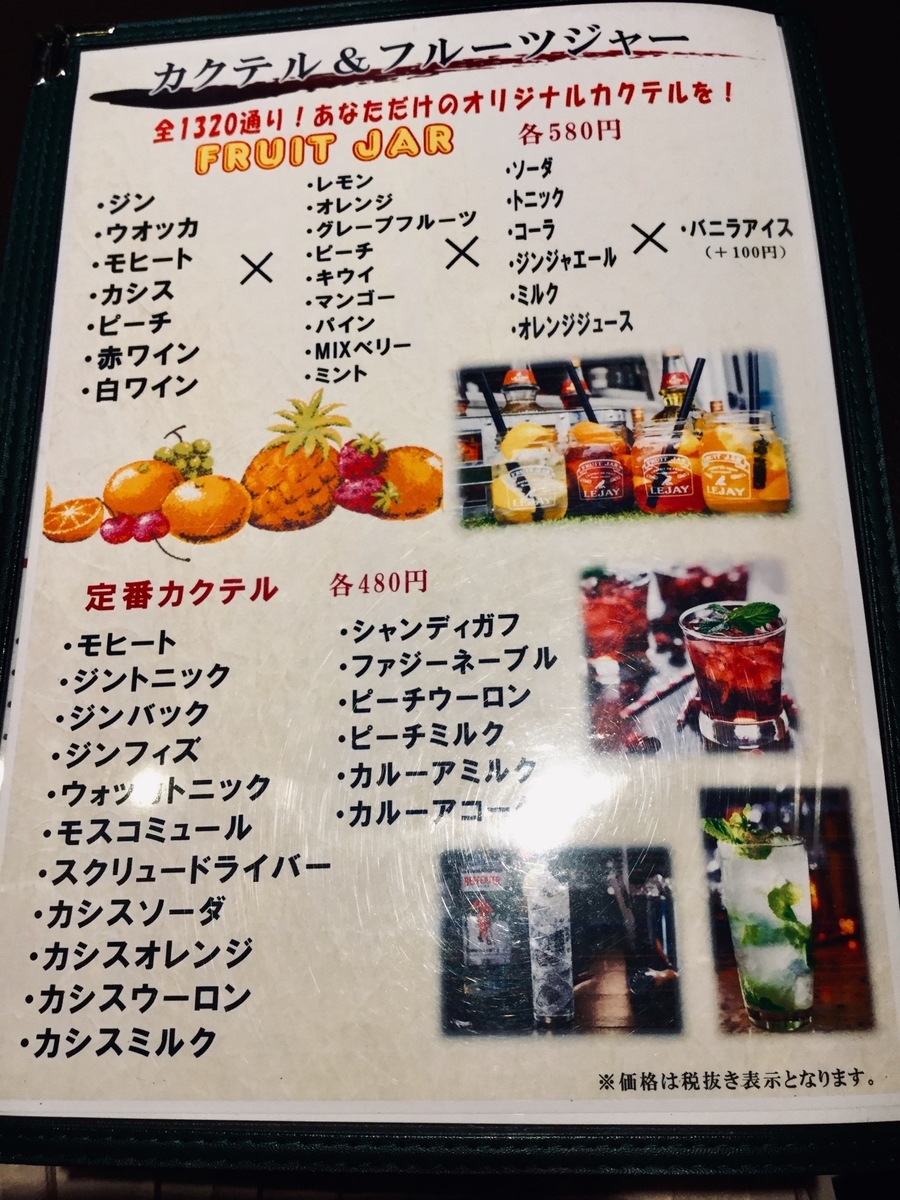 カクテル＆フルーツジャー
全1320通り！あなただけのオリジナルカクテルを！
FRUIT JAR
各580円
・ジン
・ウオッカ
・モヒート
・カシス
・ピーチ
・赤ワイン
・白ワイン
×
・レモン
・オレンジ
・グレープフルーツ
・ピーチ
・キウイ
・マンゴー
・パイン
・MIXベリー
・ミント
×
・ソーダ
・トニック
・コーラ
・ジンジャエール
・ミルク
・オレンジジュース
×
・バニラアイス
（＋100円）
FRUIT JAR
LEJAY
FRUIT JAR
LEJAY
FRUIT JAR
LEJAY
FRUIT JAR
LEJAY
定番カクテル
各480円
・モヒート
・ジントニック
・ジンバック
・ジンフィズ
・ウォッ トニック
・モスコミュール
・スクリュードライバー
・カシスソーダ
・カシスオレンジ
・カシスウーロン
・カシスミルク
・シャンディガフ
・ファジーネーブル
・ピーチウーロン
・ピーチミルク
・カルーアミルク
・カルーアコー
BEEFEATER
※価格は税抜き表示となります。